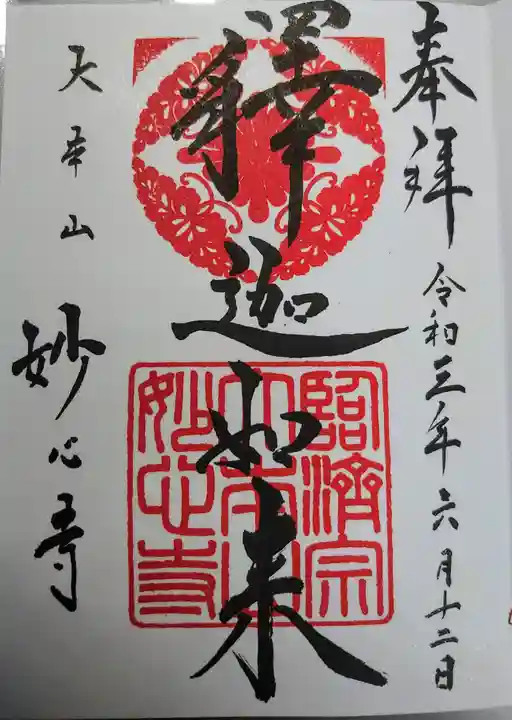 奉拝 令和三年六月十二日
釋迦如来
大本山 妙心寺
臨濟宗
大本山
妙心寺